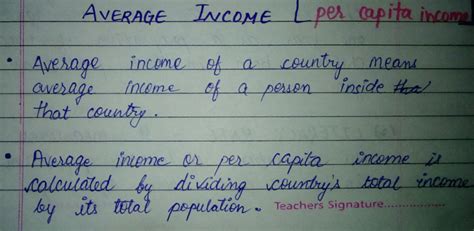 AVERAGE INCOME [ per capita income
• Average income of a country means
average income of a person inside that
that country.
• Average income or per capita income is
calculated by dividing country's total income
by its total population. Teachers Signature..................